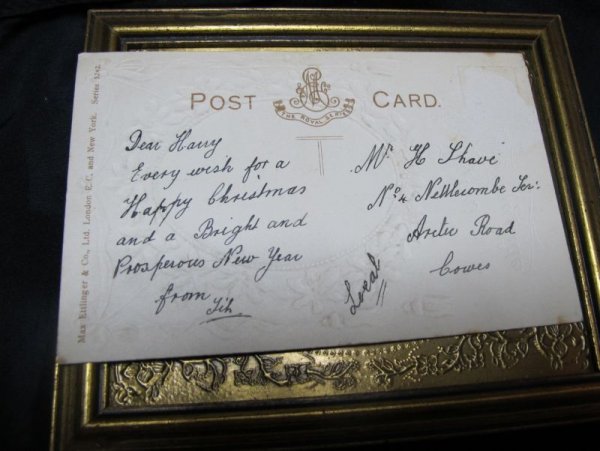 Max Ettlinger & Co., Ltd. London E.C. and New York. Series 5242.
POST CARD.
THE ROYAL SERIES
Dear Harry
Every wish for a
Happy Christmas
and a Bright and
Prosperous New Year
from
Mr H Shave
No 4 Nettlecombe Ter:
Arctic Road
Cowes
Local